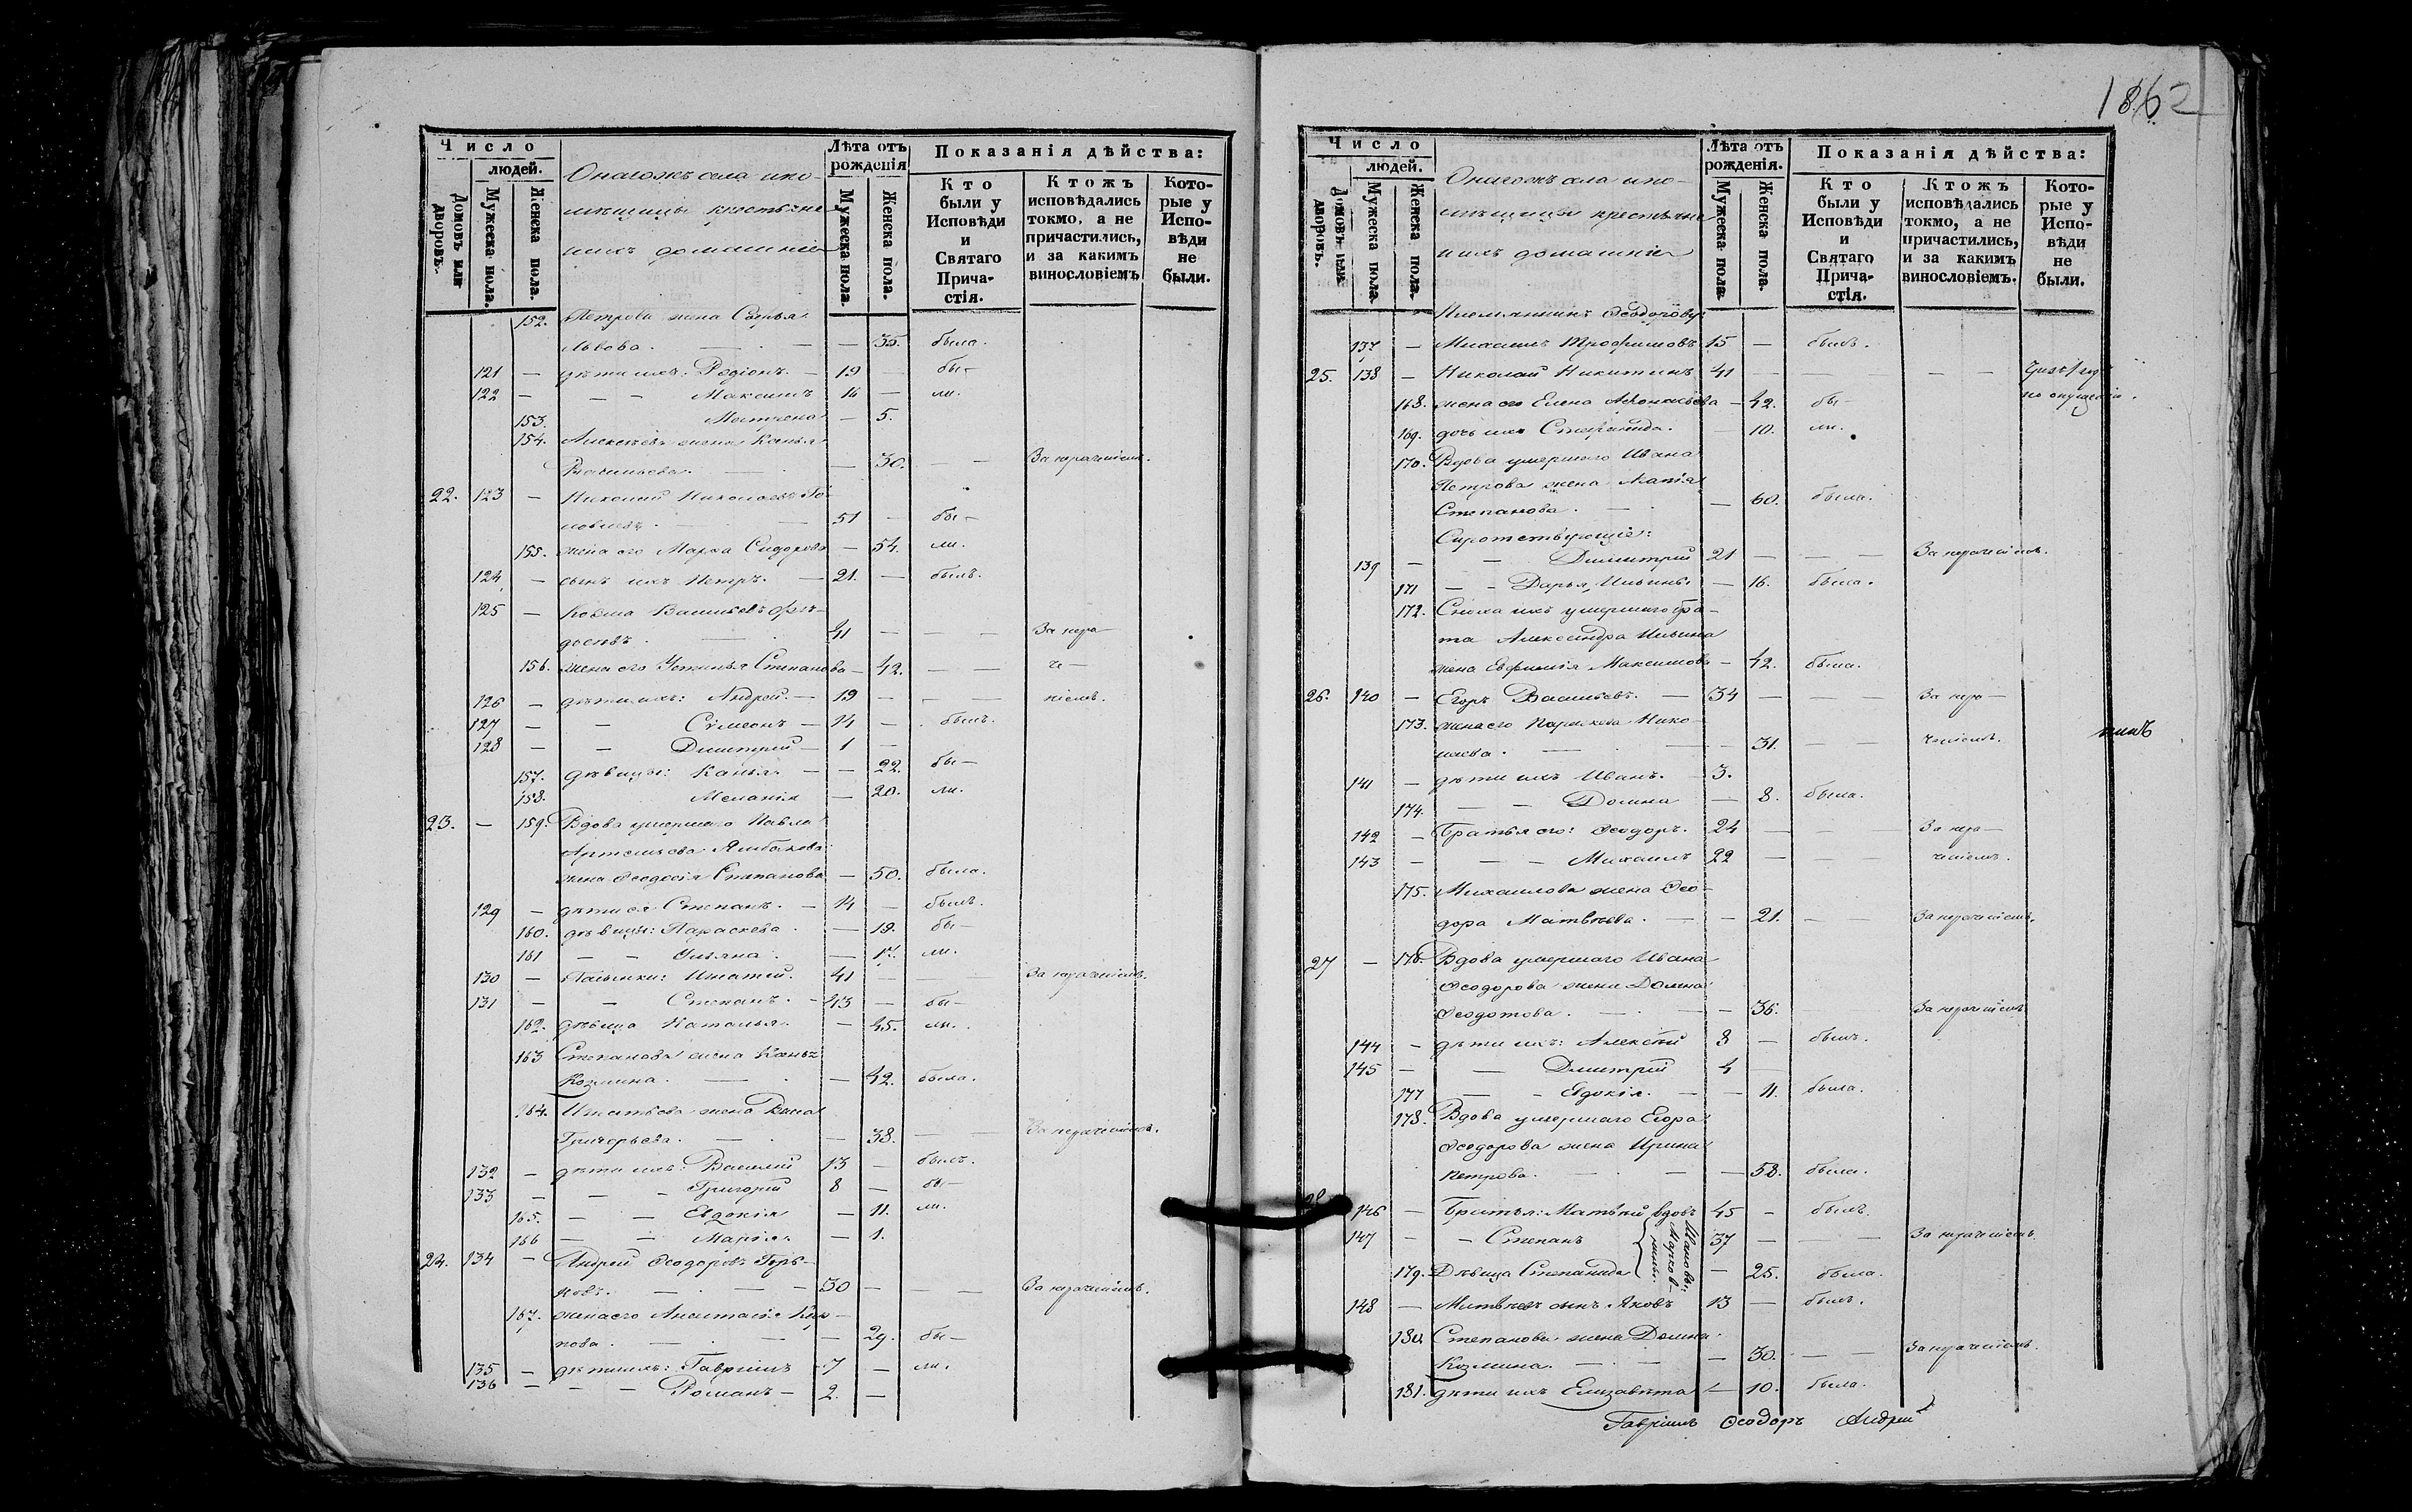 Число
людей.
Домовъ или дворовъ.
Мужеска пола.
Женска пола.
Онагожъ села по-
мѣщицы крестьяне
и ихъ домашніе
Лѣта отъ рожденія
Мужеска пола.
Женска пола.
Показанія дѣйства:
Кто были у Исповѣди и Святаго Прича-стія.
Ктожъ исповѣдались токмо, а не причастились, и за какимъ винословіемъ
Кото-рые у Испо-вѣди не были.
152. Петрова жена Софья
Львова. — — 35. была.
121 — дѣти ихъ: Родіонъ. — 19 — бы-
122 — — — Максимъ 14 — ли.
153. Матрена — 5.
154. Алексѣева жена Ксенья
Васильева. — — 30. — — За нераченіемъ.
22. 123 — Николай Николаевъ
51 — бы-
155. жена его Марѳа Сидорова — 54. ли.
124 — сынъ ихъ Петръ. — 21. — былъ.
125 — Козма Васильевъ
41 — — — За нера-
156. жена его Устинья Степанова — 42. — — че-
126 — дѣти ихъ: Андрей. — 19 — — — ніемъ.
127 — — Симеонъ — 14 — былъ.
128 — — Димитрій — 1 —
157. дѣвицы: Ксенья — — 22. бы-
158. Меланія — 20. ли.
23. — 159. Вдова умершаго Павла
Артемьева
жена Ѳеодосія Степанова — 50. была.
129 — дѣти ея Степанъ. — 14 — былъ.
160. дѣвицы: Параскева — 19. бы-
161 — — Ульяна. — 17. ли.
130 — Пасынки: Игнатій. 41 — — За нераченіемъ.
131 — — Степанъ. — 43 — бы-
162. дѣвица Наталья. — 45. ли.
163 Степанова жена Ксенья
Козмина. — — 42. была.
164. Игнатьева жена
Григорьева. — — 38. — За нераченіемъ.
132 — дѣти ихъ: Василій 13 — былъ.
133 — — — Григорій 8 — бы-
165. — — Евдокія — 11. ли.
166 — — Марія. — 1.
24. 134 — Андрей Ѳеодоровъ Горь-
ковъ. — — 30 — — — За нераченіемъ.
167. жена его Анастасія
— — 29. бы-
135 — дѣти ихъ: Гавріилъ — 7 — ли.
136 — — — Романъ — 2. —
1862
Число
людей.
Домовъ или дворовъ.
Мужеска пола.
Женска пола.
Онагожъ села по-
мѣщицы крестьяне
и ихъ домашніе
Лѣта отъ рожденія.
Мужеска пола.
Женска пола.
Показанія дѣйства:
Кто были у Исповѣди и Святаго Прича-стія.
Ктожъ исповѣдались токмо, а не причастились, и за какимъ винословіемъ.
Кото-рые у Испо-вѣди не были.
Племянникъ Ѳеодорову
137 — Михаилъ Трофимовъ 15 — былъ.
25. 138 — Николай Никитинъ 41 — — — — —
168. жена его Елена — 42. бы- по опущенію.
169. дочь ихъ Стефанида. — 10. ли.
170. Вдова умершаго Ивана
Петрова жена Марія
Степанова. — — 60. была.
Сиротствующіе:
139 — — Димитрій 21 — — — За нераченіемъ.
171 — — Дарья, Ильины. — 16. была.
172. Сноха ихъ умершаго бра-
та Александра Ильина
жена Евфимія Максимова — 42. была.
26. 140 — Егоръ Васильевъ. — 34 — — — За нера-
173. жена его Парасковья Нико-
лаева. — — 31. — — ченіемъ.
141 — дѣти ихъ Иванъ. — 3.
174. — — Домна — 8. была.
142 — Братья его: Ѳеодоръ. 24 — — За нера-
143 — — — Михаилъ 22 — — ченіемъ.
175. Михаилова жена Ѳео-
дора Матвѣева. — — 21. — — За нераченіемъ.
27 — 176. Вдова умершаго Ивана
Ѳеодорова жена Домна
Ѳеодотова. — — 36. За нераченіемъ
144 — дѣти ихъ: Алексѣй 8 — былъ.
145 — — Дмитрій 4 —
177 — — Евдокія. — — 11. была.
178. Вдова умершаго Егора
Ѳеодорова жена Ирина
Петрова. — — 58. была.
28. 146 — Братья: Матвѣй вдовъ 45 — былъ.
147 — — Степанъ 37 — — — За нераченіемъ.
179. Дѣвица Степанида — 25. была.
148 — Матвѣевъ сынъ Яковъ 13 — былъ.
180. Степанова жена Домна
Козмина. — — 30. — — За нераченіемъ.
181. дѣти ихъ Елизавета — 10. была.
Гавріилъ Ѳеодоръ Андрей